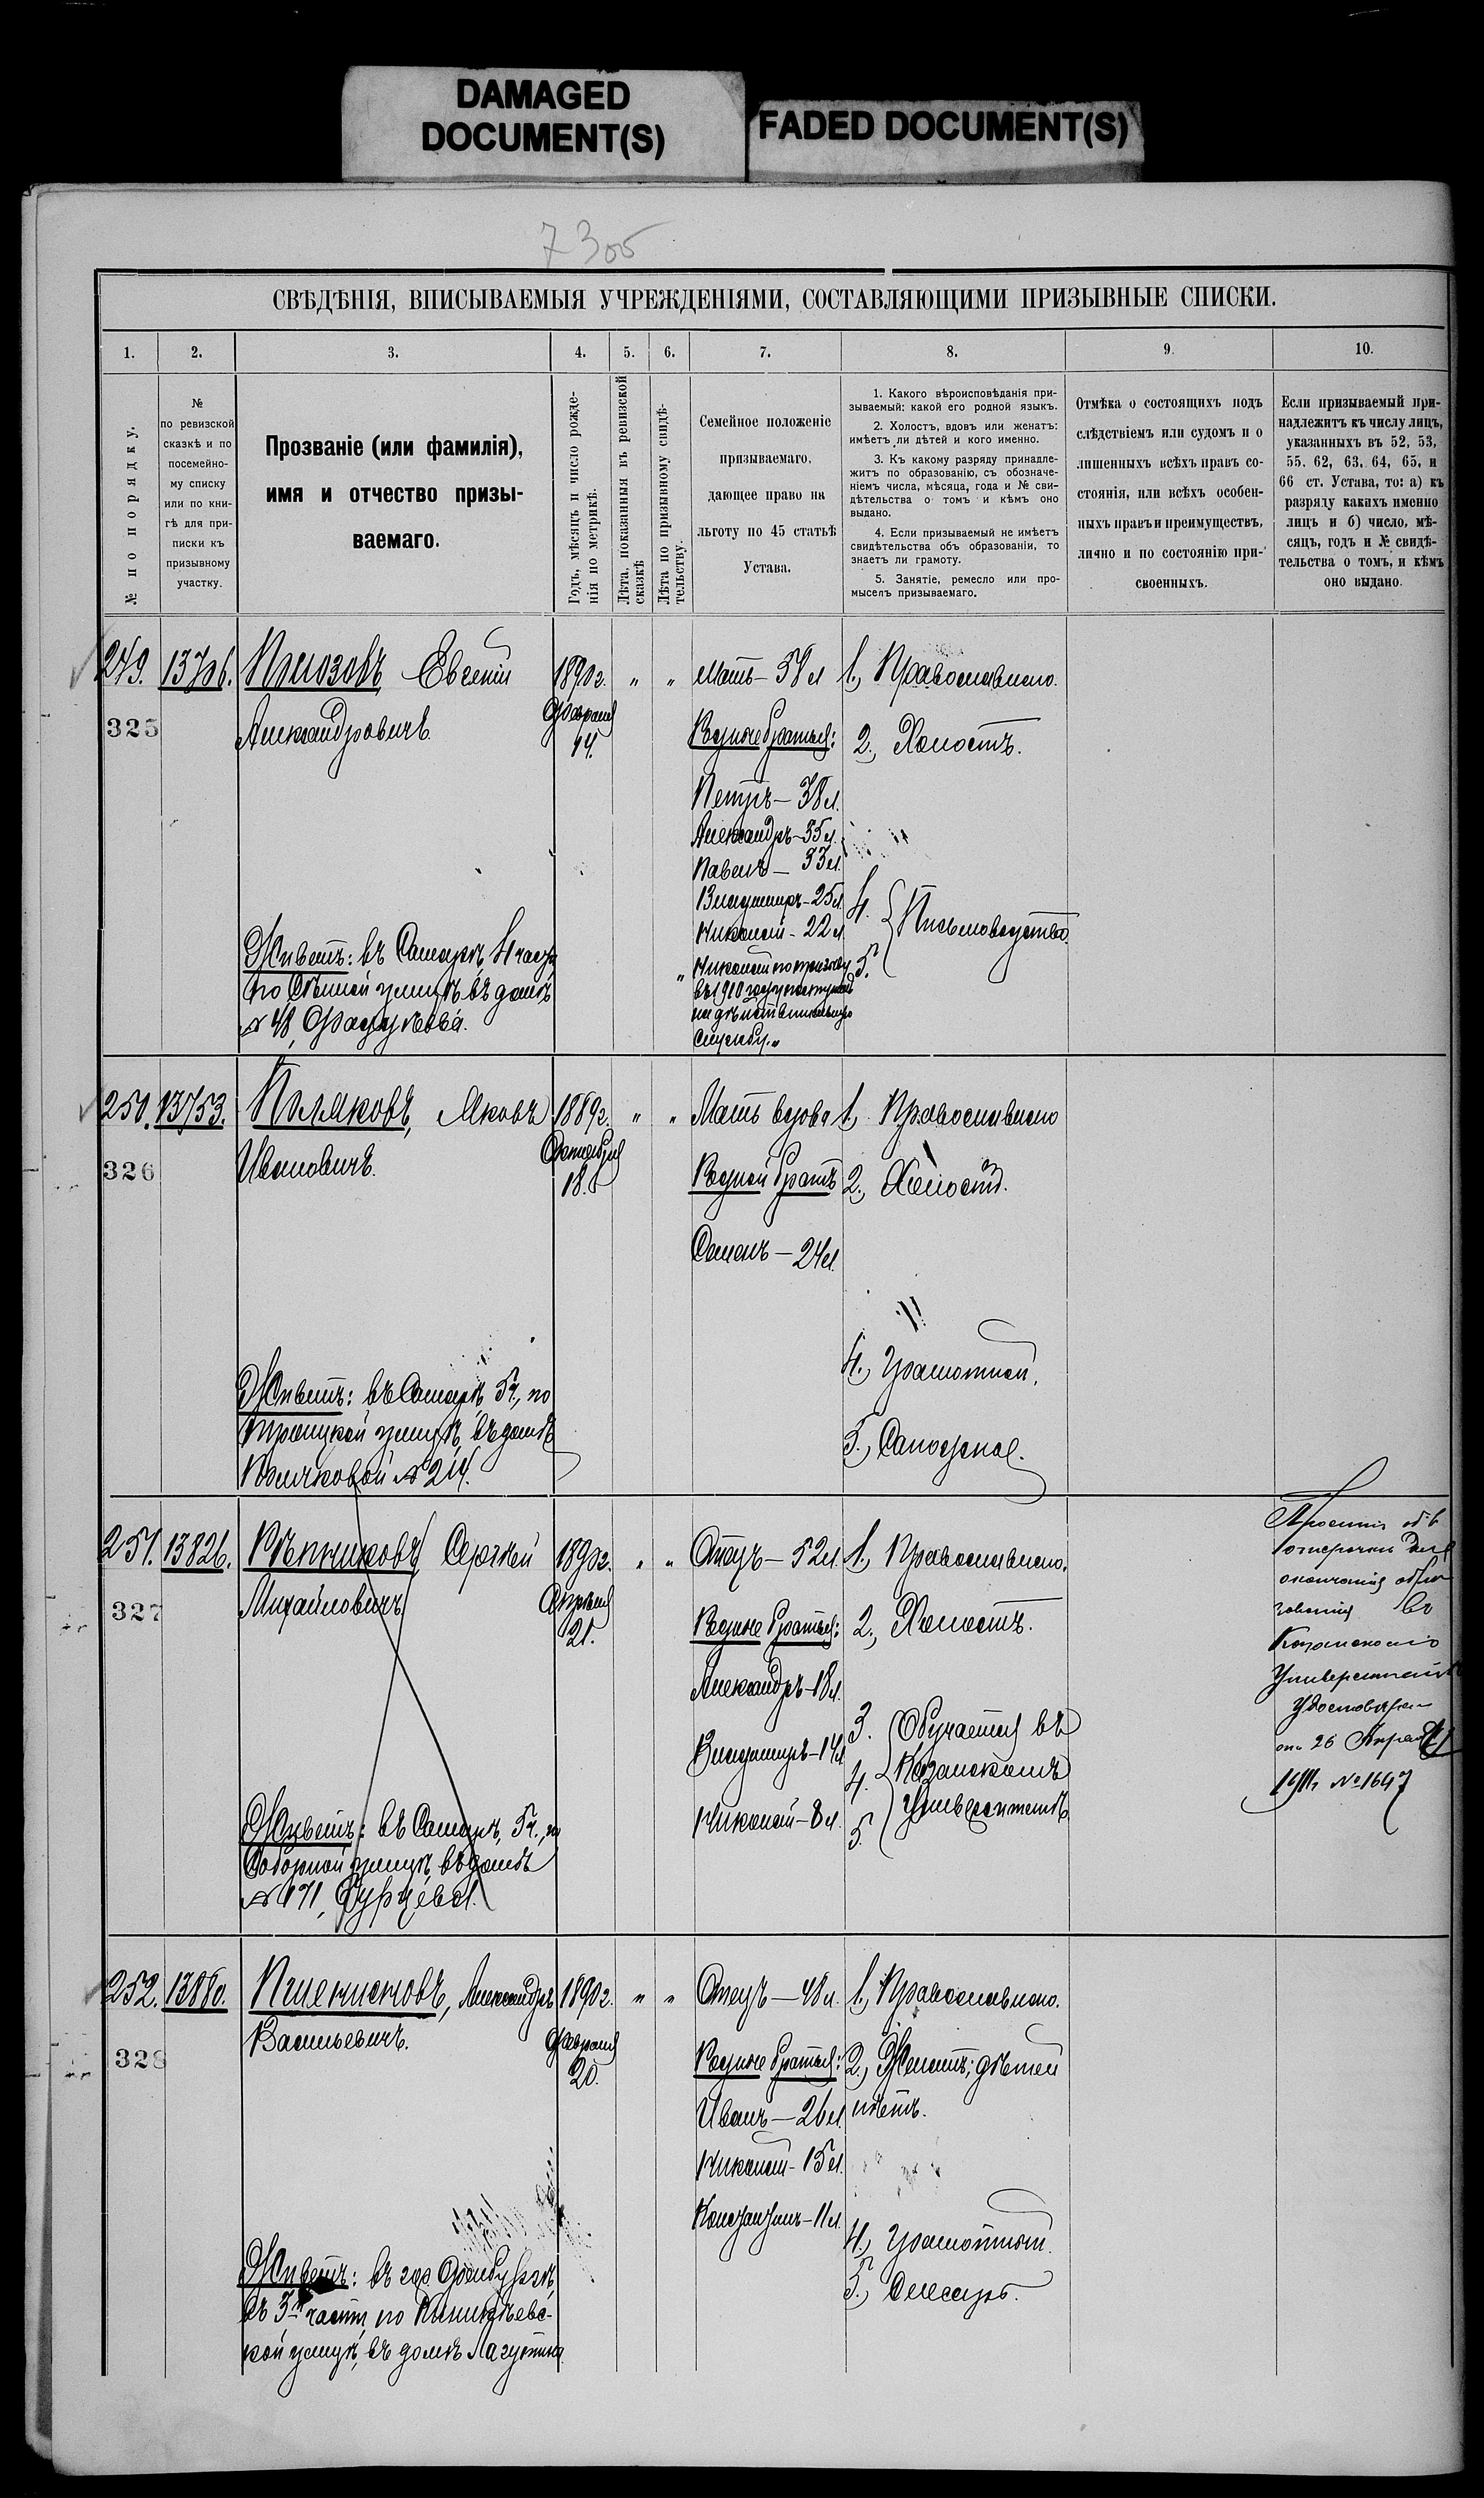 DAMAGED
DOCUMENT(S)
FADED DOCUMENT(S)
7305
СВѢДѢНІЯ, ВПИСЫВАЕМЫЯ УЧРЕЖДЕНІЯМИ, СОСТАВЛЯЮЩИМИ ПРИЗЫВНЫЕ СПИСКИ.
1. 2. 3. 4. 5. 6. 7. 8. 9. 10.
№ по порядку.
№
по ревизской
сказкѣ и по
посемейно-
му списку
или по кни-
гѣ для при-
писки къ
призывному
участку.
Прозваніе (или фамилія),
имя и отчество призы-
ваемаго.
Годъ, мѣсяцъ и число рожде-
нія по метрикѣ.
Лѣта, показанныя въ ревизской
сказкѣ
Лѣта по призывному свидѣ-
тельству.
Семейное положеніе
призываемаго,
дающее право на
льготу по 45 статьѣ
Устава.
1. Какого вѣроисповѣданія при-
зываемый: какой его родной языкъ.
2. Холостъ, вдовъ или женатъ:
имѣетъ ли дѣтей и кого именно.
3. Къ какому разряду принадле-
житъ по образованію, съ обозначе-
ніемъ числа, мѣсяца, года и № сви-
дѣтельства о томъ и кѣмъ оно
выдано.
4. Если призываемый не имѣетъ
свидѣтельства объ образованіи, то
знаетъ ли грамоту.
5. Занятіе, ремесло или про-
мыселъ призываемаго.
Отмѣка о состоящихъ подъ
слѣдствіемъ или судомъ и о
лишенныхъ всѣхъ правъ со-
стоянія, или всѣхъ особен-
ныхъ правъ и преимуществъ,
лично и по состоянію при-
своенныхъ.
Если призываемый при-
надлежитъ къ числу лицъ,
указанныхъ въ 52, 53,
55, 62, 63, 64, 65, и
66 ст. Устава, то: а) къ
разряду какихъ именно
лицъ и б) число, мѣ-
сяцъ, годъ и № свидѣ-
тельства о томъ, и кѣмъ
оно выдано.
249. 13706.
325
Евгеній
Александровичъ.
Живетъ: въ Самарѣ, 4 части
по Сѣнной улицѣ въ домѣ
№ 48,
1890 г.
Февраля
14.
" "
Мать - 58 л
Родные братья:
Петръ - 38 л.
Александръ - 35 л.
Павелъ - 33 л.
Владиміръ - 25 л.
Николай - 22 л
" Николай по призыву
въ 1910 году поступилъ
на дѣйствительную
службу."
1., Православнаго.
2., Холостъ.
4.
5.
Письмоводство.
250. 13753.
326
Поляковъ, Яковъ
Ивановичъ.
Живетъ: въ Самарѣ, 5 ч., по
Троицкой улицѣ, въ домѣ
Поляковой № 214.
1889 г.
Октября
18.
" "
Мать вдова
Родной братъ
Семенъ - 24 л.
1., Православнаго
2., Холостъ.
4., Грамотный.
5., Сапожникъ.
251. 13826.
327
Рѣпниковъ Сергѣй
Михайловичъ
Живетъ: въ Самарѣ, 5 ч., по
Соборной улицѣ, въ домѣ
№ 171, Сурцева.
1890 г.
Апрѣля
21.
" "
Отецъ - 52 л.
Родные братья:
Александръ - 18 л.
Владиміръ - 14 л
Николай - 8 л.
1., Православнаго.
2., Холостъ.
3.
4.
5.
Обучается въ
Казанскомъ
Университетѣ
Проситъ объ
отсрочки для
окончанія обра
зованія въ
Казанскомъ
Университетѣ
Удостовѣрен
26 Апрѣля
1911 № 1647
252. 13880.
328
Александръ
Васильевичъ.
Живетъ: въ гор. Оренбургѣ,
въ 3-й части, по
кой улицѣ, въ домѣ Лагутина
1890 г.
Февраля
20.
" "
Отецъ - 48 л.
Родные братья:
Иванъ - 26 л.
Николай - 15 л.
Константинъ - 11 л.
1., Православнаго.
2., Женатъ; дѣтей
нѣтъ.
4., Грамотный.
5., Слесарь.